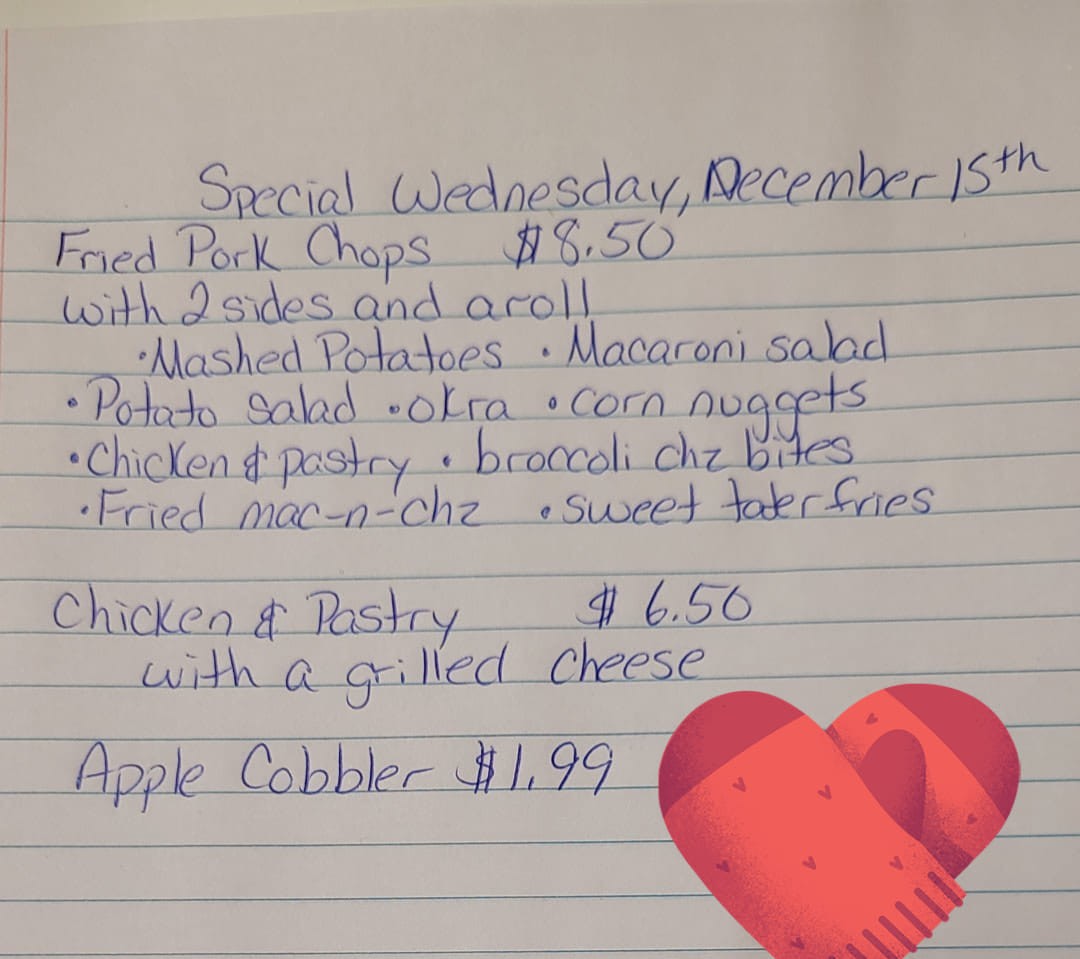 Special Wednesday, December 15th
Fried Pork Chops $8.50
with 2 sides and a roll
•Mashed Potatoes • Macaroni salad
• Potato salad •okra •corn nuggets
•Chicken & pastry • broccoli chz bites
•Fried mac-n-chz •sweet tater fries
Chicken & Pastry $6.50
with a grilled cheese
Apple Cobbler $1.99